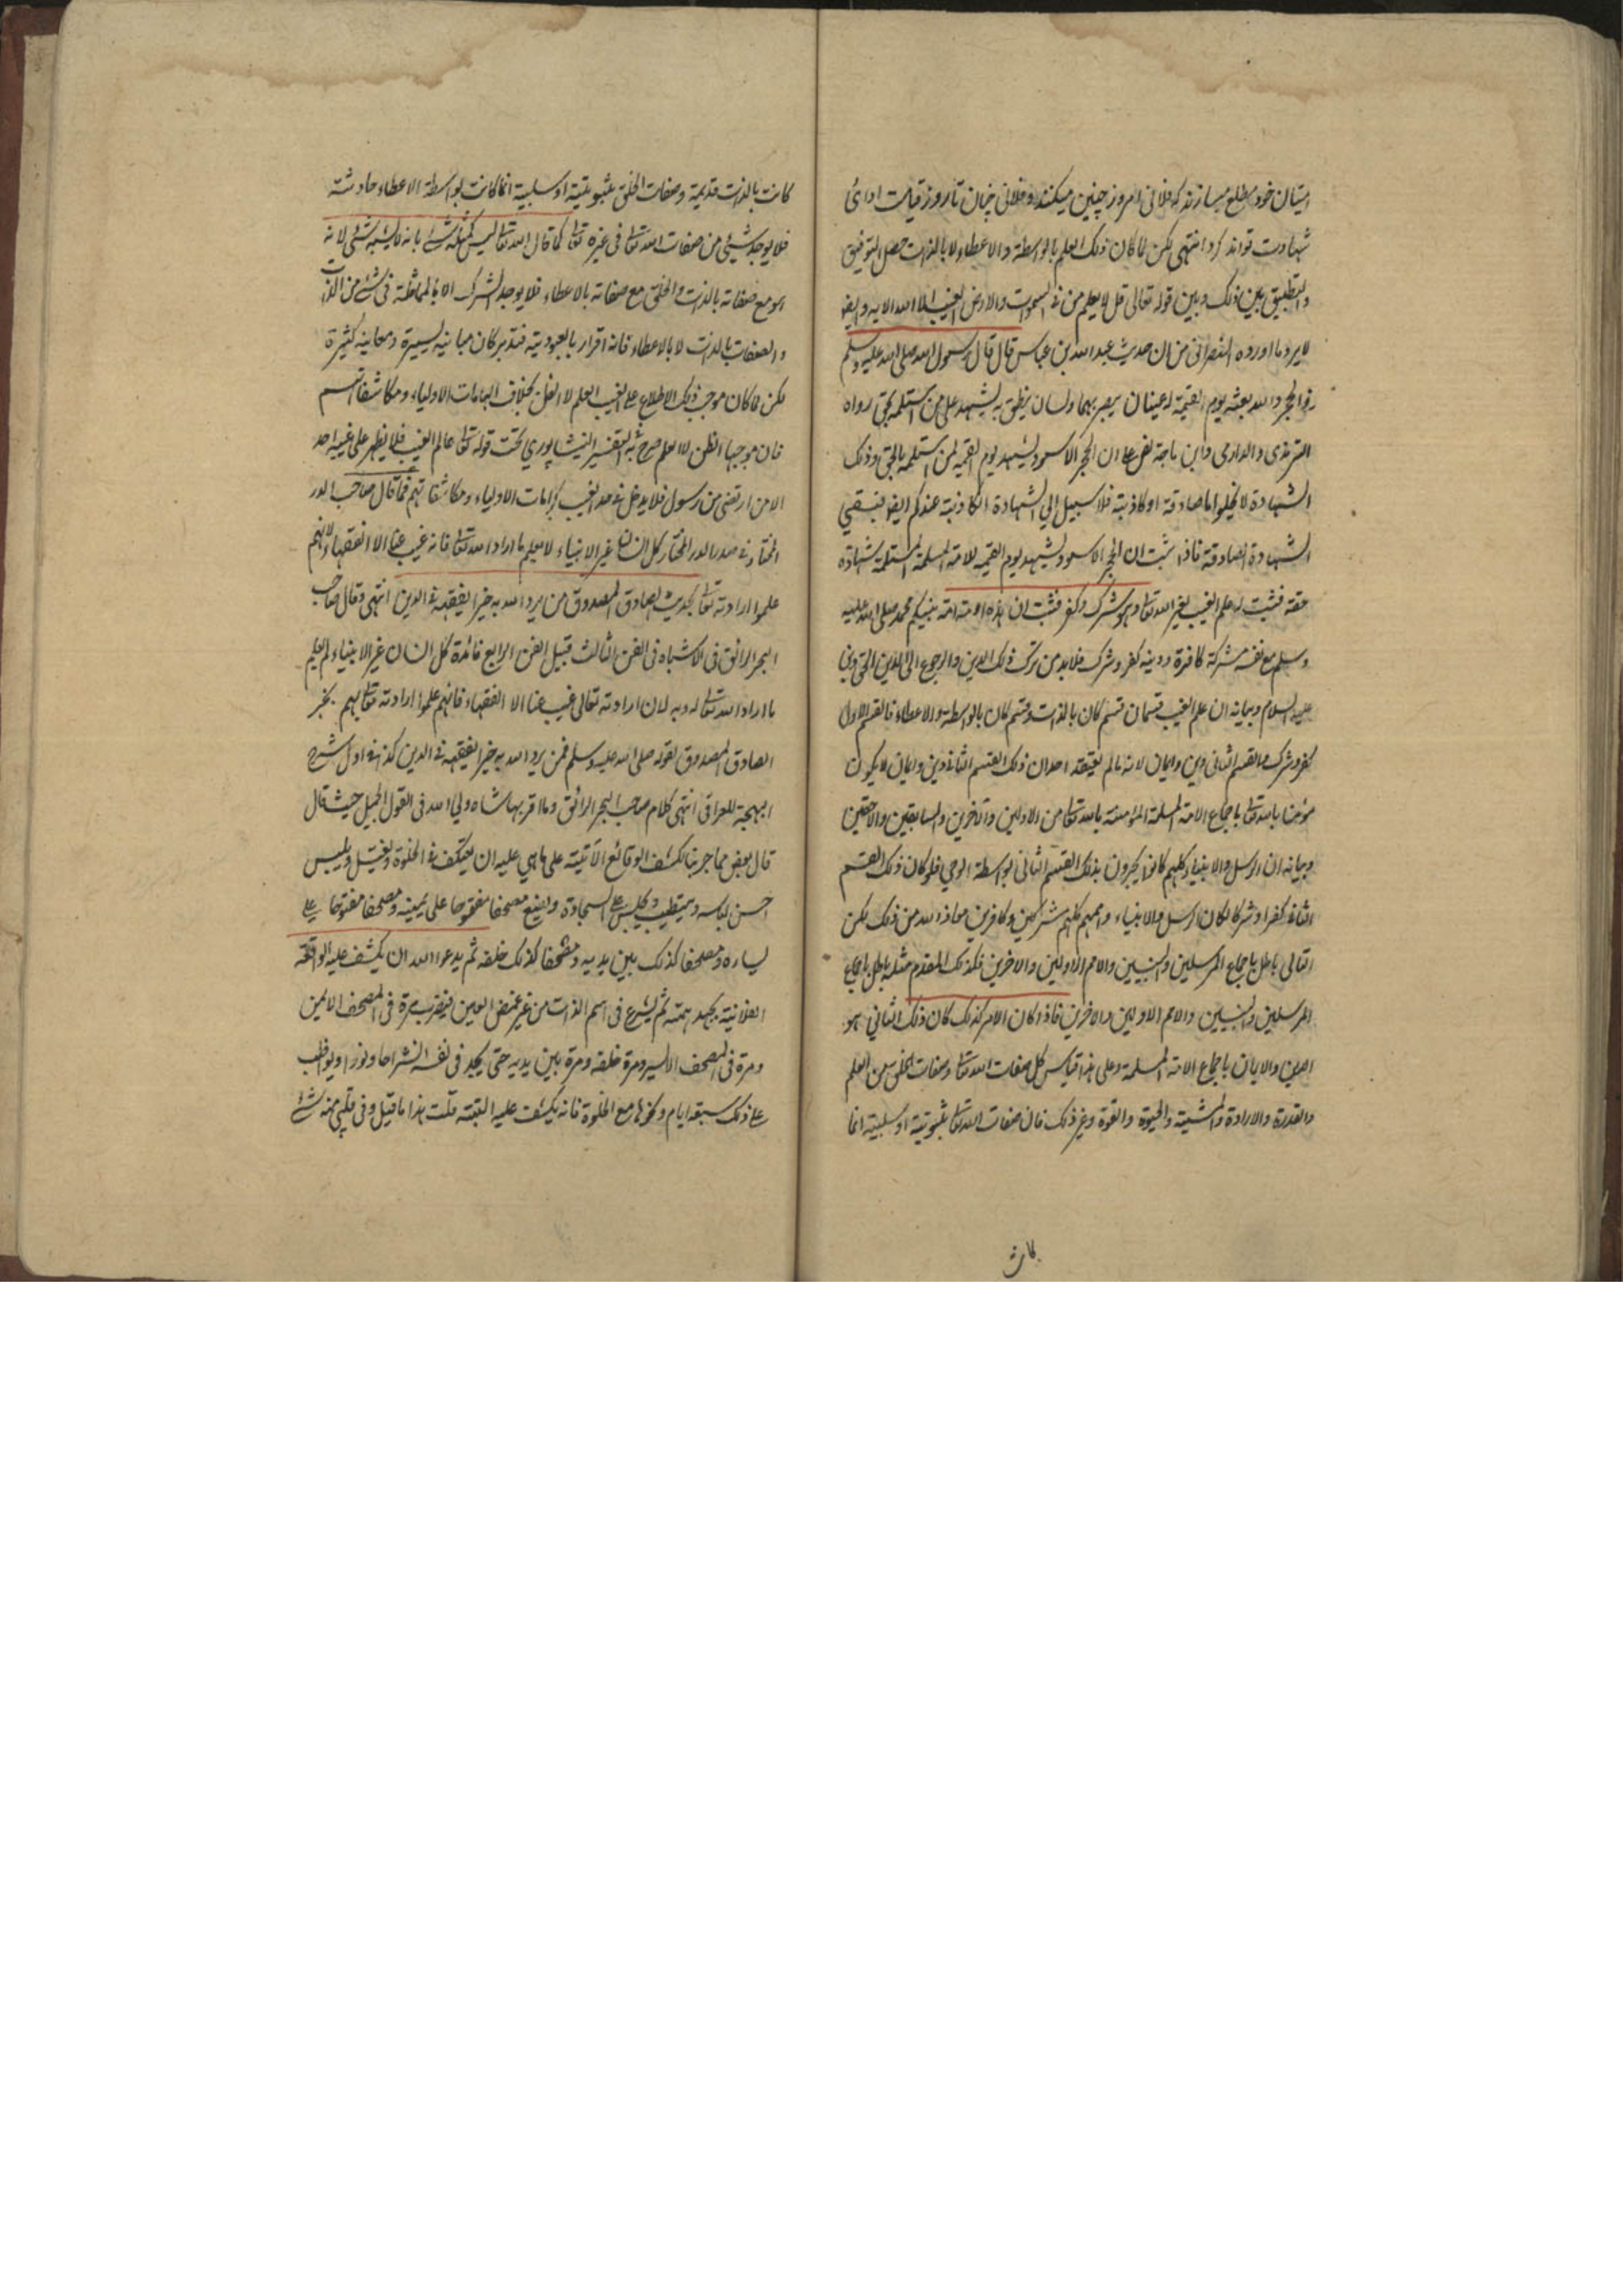 ایشان خود مطلع میسازند که فلانی امروز چنین میکند و فلانی چنان تا روز قیامت ادائ
شهادت تواند کرد انتهی لکن لما کان ذلک العلم بالواسطة والاعطاء لا بالذات حصل التوفیق
والتطبیق بین ذلک وبین قوله تعالی قل لا یعلم من فی السموات والارض الغیب الا الله الآیه وایضا
لا یرد ما اورده النصرانی من ان حدیث عبد الله بن عباس قال قال رسول الله صلی الله علیه وسلم
فی الحجر والله یبعثه یوم القیمة له عینان یبصر بهما ولسان ینطق به یشهد علی من استلمه بحق رواه
الترمذی والدارمی وابن ماجة نص علی ان الحجر الاسود یشهد یوم القیمه لمن استلمه بالحق وذلک
الشهادة لا یخلوا اما صادقة او کاذبة فلا سبیل الی الشهادة الکاذبة عندکم ایضا فبقی
الشهادة الصادقة فاذا ثبت ان الحجر الاسود یشهد یوم القیمه للامة المسلمة المستلمة شهادة
حقة فثبت له علم الغیب لغیر الله تعا وهو شرک وکفر فثبت ان هذه الامة امة نبیکم محمد صلی الله علیه
وسلم مع نفسه مشرکة کافرة ودینه کفر وشرک فلا بد من ترک ذلک الدین والرجوع الی الدین الحق دیننا
علیه السلام وبیانه ان علم الغیب قسمان قسم کان بالذات وقسم کان بالواسطة والاعطاء فالقسم الاول
کفر وشرک والقسم الثانی دین وایمان لانه ما لم یعتقد احد ان ذلک القسم الثانی دین وایمان لا یکون
مؤمنا بالله تعا باجماع الامة المسلمة المؤمنة بالله تعا من الاولین والآخرین والسابقین واللاحقین
وبیانه ان الرسل والانبیاء کلهم کانوا یخبرون بذلک القسم الثانی بواسطة الوحی فلو کان ذلک القسم
الثانی کفرا وشرکا لکان الرسل والانبیاء واممهم کلهم مشرکین وکافرین معاذ الله من ذلک لکن
التالی باطل باجماع المرسلین والنبیین والامم الاولین والاخرین فکذلک المقدم مثله باطل باجماع
المرسلین والنبیین والامم الاولین والاخرین فاذا کان الامر کذلک کان ذلک الثانی هو
الدین والایمان باجماع الامة المسلمة وعلی هذا قیاس کل صفات الله تعا وصفات الخلق من العلم
والقدرة والارادة والمشیة والحیوة والقوة وغیر ذلک فان صفات الله تعا ثبوتیة او سلبیة انما
کانت بالذات قدیمة وصفات الخلق ثبوتیة او سلبیة انما کانت بواسطة الاعطاء حادثة
فلا یوجد شیئ من صفات الله تعا فی غیره تعا کما قال الله تعا لیس کمثله شئ بانه لا یشبهه شئ لانه
هو مع صفاته بالذات والخلق مع صفاته بالاعطاء فلا یوجد الشرک الا بالمماثلة فی شئ من الذات
والصفات بالذات لا بالاعطاء فانه اقرار بالعبودیة فتدبر کان مبانیه یسیرة ومعانیه کثیرة
لکن لما کان موجب ذلک الاطلاع علی الغیب العلم لا الظن بخلاف الهامات الاولیاء ومکاشفاتهم
فان موجبها الظن لا العلم صرح به التفسیر النیشاپوری تحت قوله تعا عالم الغیب فلا یظهر علی غیبه احدا
الا من ارتضی من رسول فلا یدخل فی حد الغیب کرامات الاولیاء ومکاشفاتهم فما قال صاحب الدر
المختار فی صدر الدر المختار کل انسان غیر الانبیاء لا یعلم ما اراد الله تعا فانه غیب عنا الا الفقهاء لانهم
علموا ارادته تعا بحدیث الصادق المصدوق من یرد الله به خیرا یفقهه فی الدین انتهی وقال صاحب
البحر الرائق فی الاشباه فی الفن الثالث قبیل الفن الرابع فائدة کل انسان غیر الانبیاء لم یعلم
ما اراد الله تعا له وبه لان ارادته تعالی غیب عنا الا الفقهاء فانهم علموا ارادته تعا بهم بخبر
الصادق المصدوق بقوله صلی الله علیه وسلم فمن یرد الله به خیرا یفقهه فی الدین کذا فی اول شرح
البهجة للعراقی انتهی کلام صاحب البحر الرائق وما اقر بها شاه ولی الله فی القول الجمیل حیث قال
قال بعض مما جربنا لکشف الوقائع الآتیة علی ما هی علیه ان یعتکف فی الخلوة ویغتسل ویلبس
احسن لباسه ویتطیب ویجلس علی السجادة ویضع مصحفا مفتوحا علی یمینه ومصحفا مفتوحا علی
یساره ومصحفا کذلک بین یدیه ومصحفا کذلک خلفه ثم یدعوا الله ان یکشف علیه الواقعة
الفلانیة بجهد همته ثم یشرع فی اسم الذات من غیر غمض العین فیضرب مرة فی المصحف الایمن
ومرة فی المصحف الایسر ومرة خلفه ومرة بین یدیه حتی یجد فی نفسه انشراحا ونورا ویواظب
علی ذلک سبعة ایام ونحوها مع الخلوة فانه یکشف علیه البتة قلت هذا ما قیل وفی قلبی منه شئ
کانت